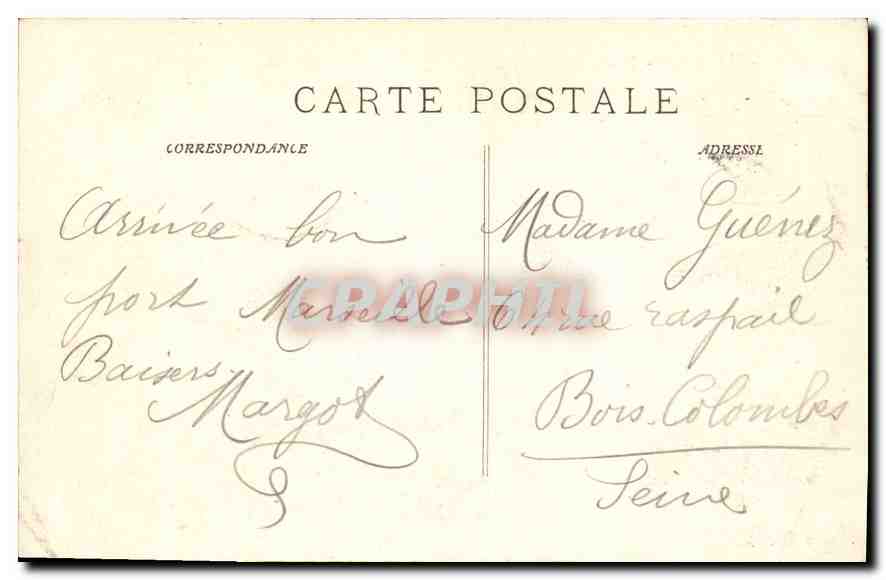 CARTE POSTALE
CORRESPONDANCE
ADRESSE
Arrivée bon
port Marseille
Baisers
Margot
Madame
rue raspail
Bois-Colombes
Seine
CPAPHIL